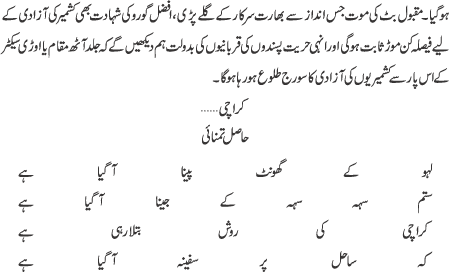 ہوگیا۔ مقبول بٹ کی موت جس انداز سے بھارت سرکار کے گلے پڑی، افضل گورو کی شہادت بھی کشمیر کی آزادی کے
لیے فیصلہ کن موڑ ثابت ہوگی اور انہی حریت پسندوں کی قربانیوں کی بدولت ہم دیکھیں گے کہ جلد آٹھ مقام یا اوڑی سیکٹر
کے اس پار سے کشمیریوں کی آزادی کا سورج طلوع ہو رہا ہوگا۔
کراچی ......
حاصل تمنائی
لہو کے گھونٹ پینا آگیا ہے
ستم سہہ سہہ کے جینا آگیا ہے
کراچی کی روش بتلا رہی ہے
کہ ساحل پر سفینہ آگیا ہے